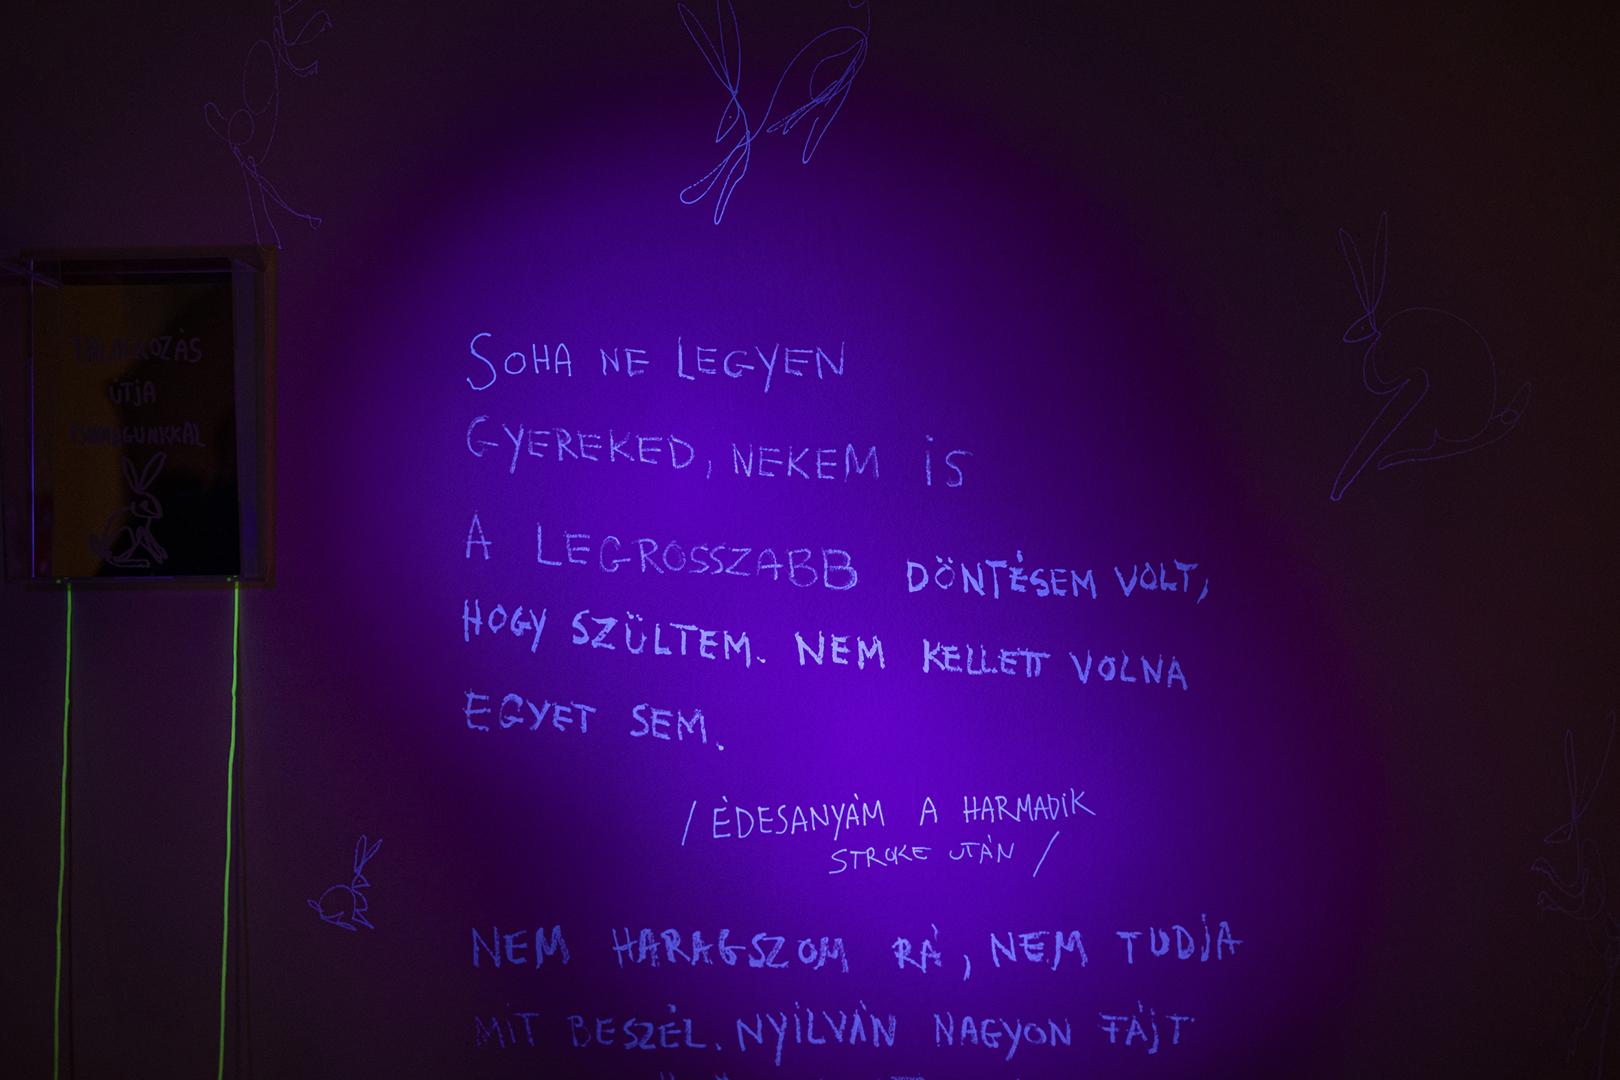 TALÁLKOZÁS
ÚTJA
ÖNMAGUNKKAL
SOHA NE LEGYEN
GYEREKED, NEKEM IS
A LEGROSSZABB DÖNTÉSEM VOLT,
HOGY SZÜLTEM. NEM KELLETT VOLNA
EGYET SEM.
/ ÉDESANYÁM A HARMADIK
STROKE UTÁN /
NEM HARAGSZOM RÁ, NEM TUDJA
MIT BESZÉL. NYILVÁN NAGYON FÁJT